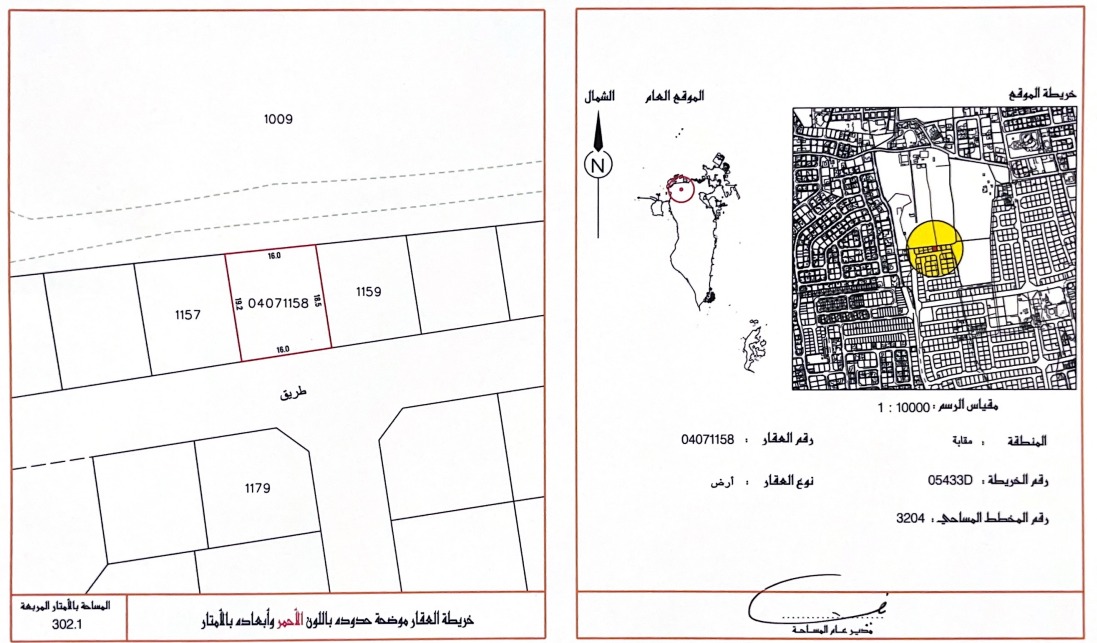 1009
16.0
19.2
04071158
18.5
16.0
1157
1159
طريق
1179
المساحة بالأمتار المربعة
302.1
خريطة العقار موضحة حدوده باللون الأحمر وأبعاده بالأمتار
خريطة الموقع
الموقع العام
الشمال
N
مقياس الرسم : 10000 : 1
المنطقة : مقابة
رقم العقار : 04071158
رقم الخريطة : 05433D
نوع العقار : أرض
رقم المخطط المساحي : 3204
مدير عام المساحة